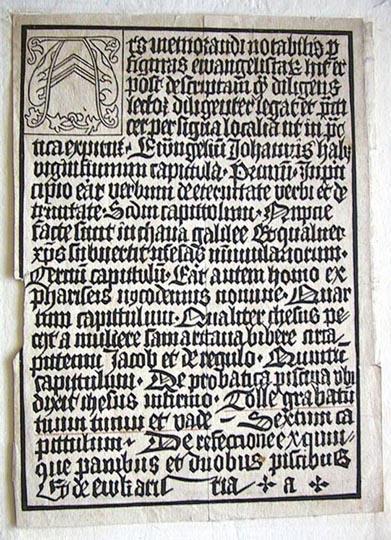 Ars memorandi notabilis p
figuras ewangelistarū hic ex
post descriptam q̄ diligens
lector diligenter legat et
per signa localia ut in p̄c
tica Ewangeliū Johannis habz
viginti unum capitula · Primū · In prin
cipio erat verbum de eternitate verbi et de
trinitate · Scdm capittolum · Nupcie
facte sunt in chana galilee Et qualiter
xp̄s subvertit mensas numulariorum ·
Tercium capitulū · Erat autem homo ex
phariseis nycodemus nomine · Quar
tum capittulum · Qualiter ihesus pe
cijt a muliere samaritana bibere circa
puteum Jacob et de regulo · Quintū
capittulum · De probatica piscina vbi
dixit ihesus infirmo · Tolle grabatū
tuum et vade · Sextum ca
pittulum · De refeccione ex quin
que panibus et duobus piscibus
Et de ewkaristia a